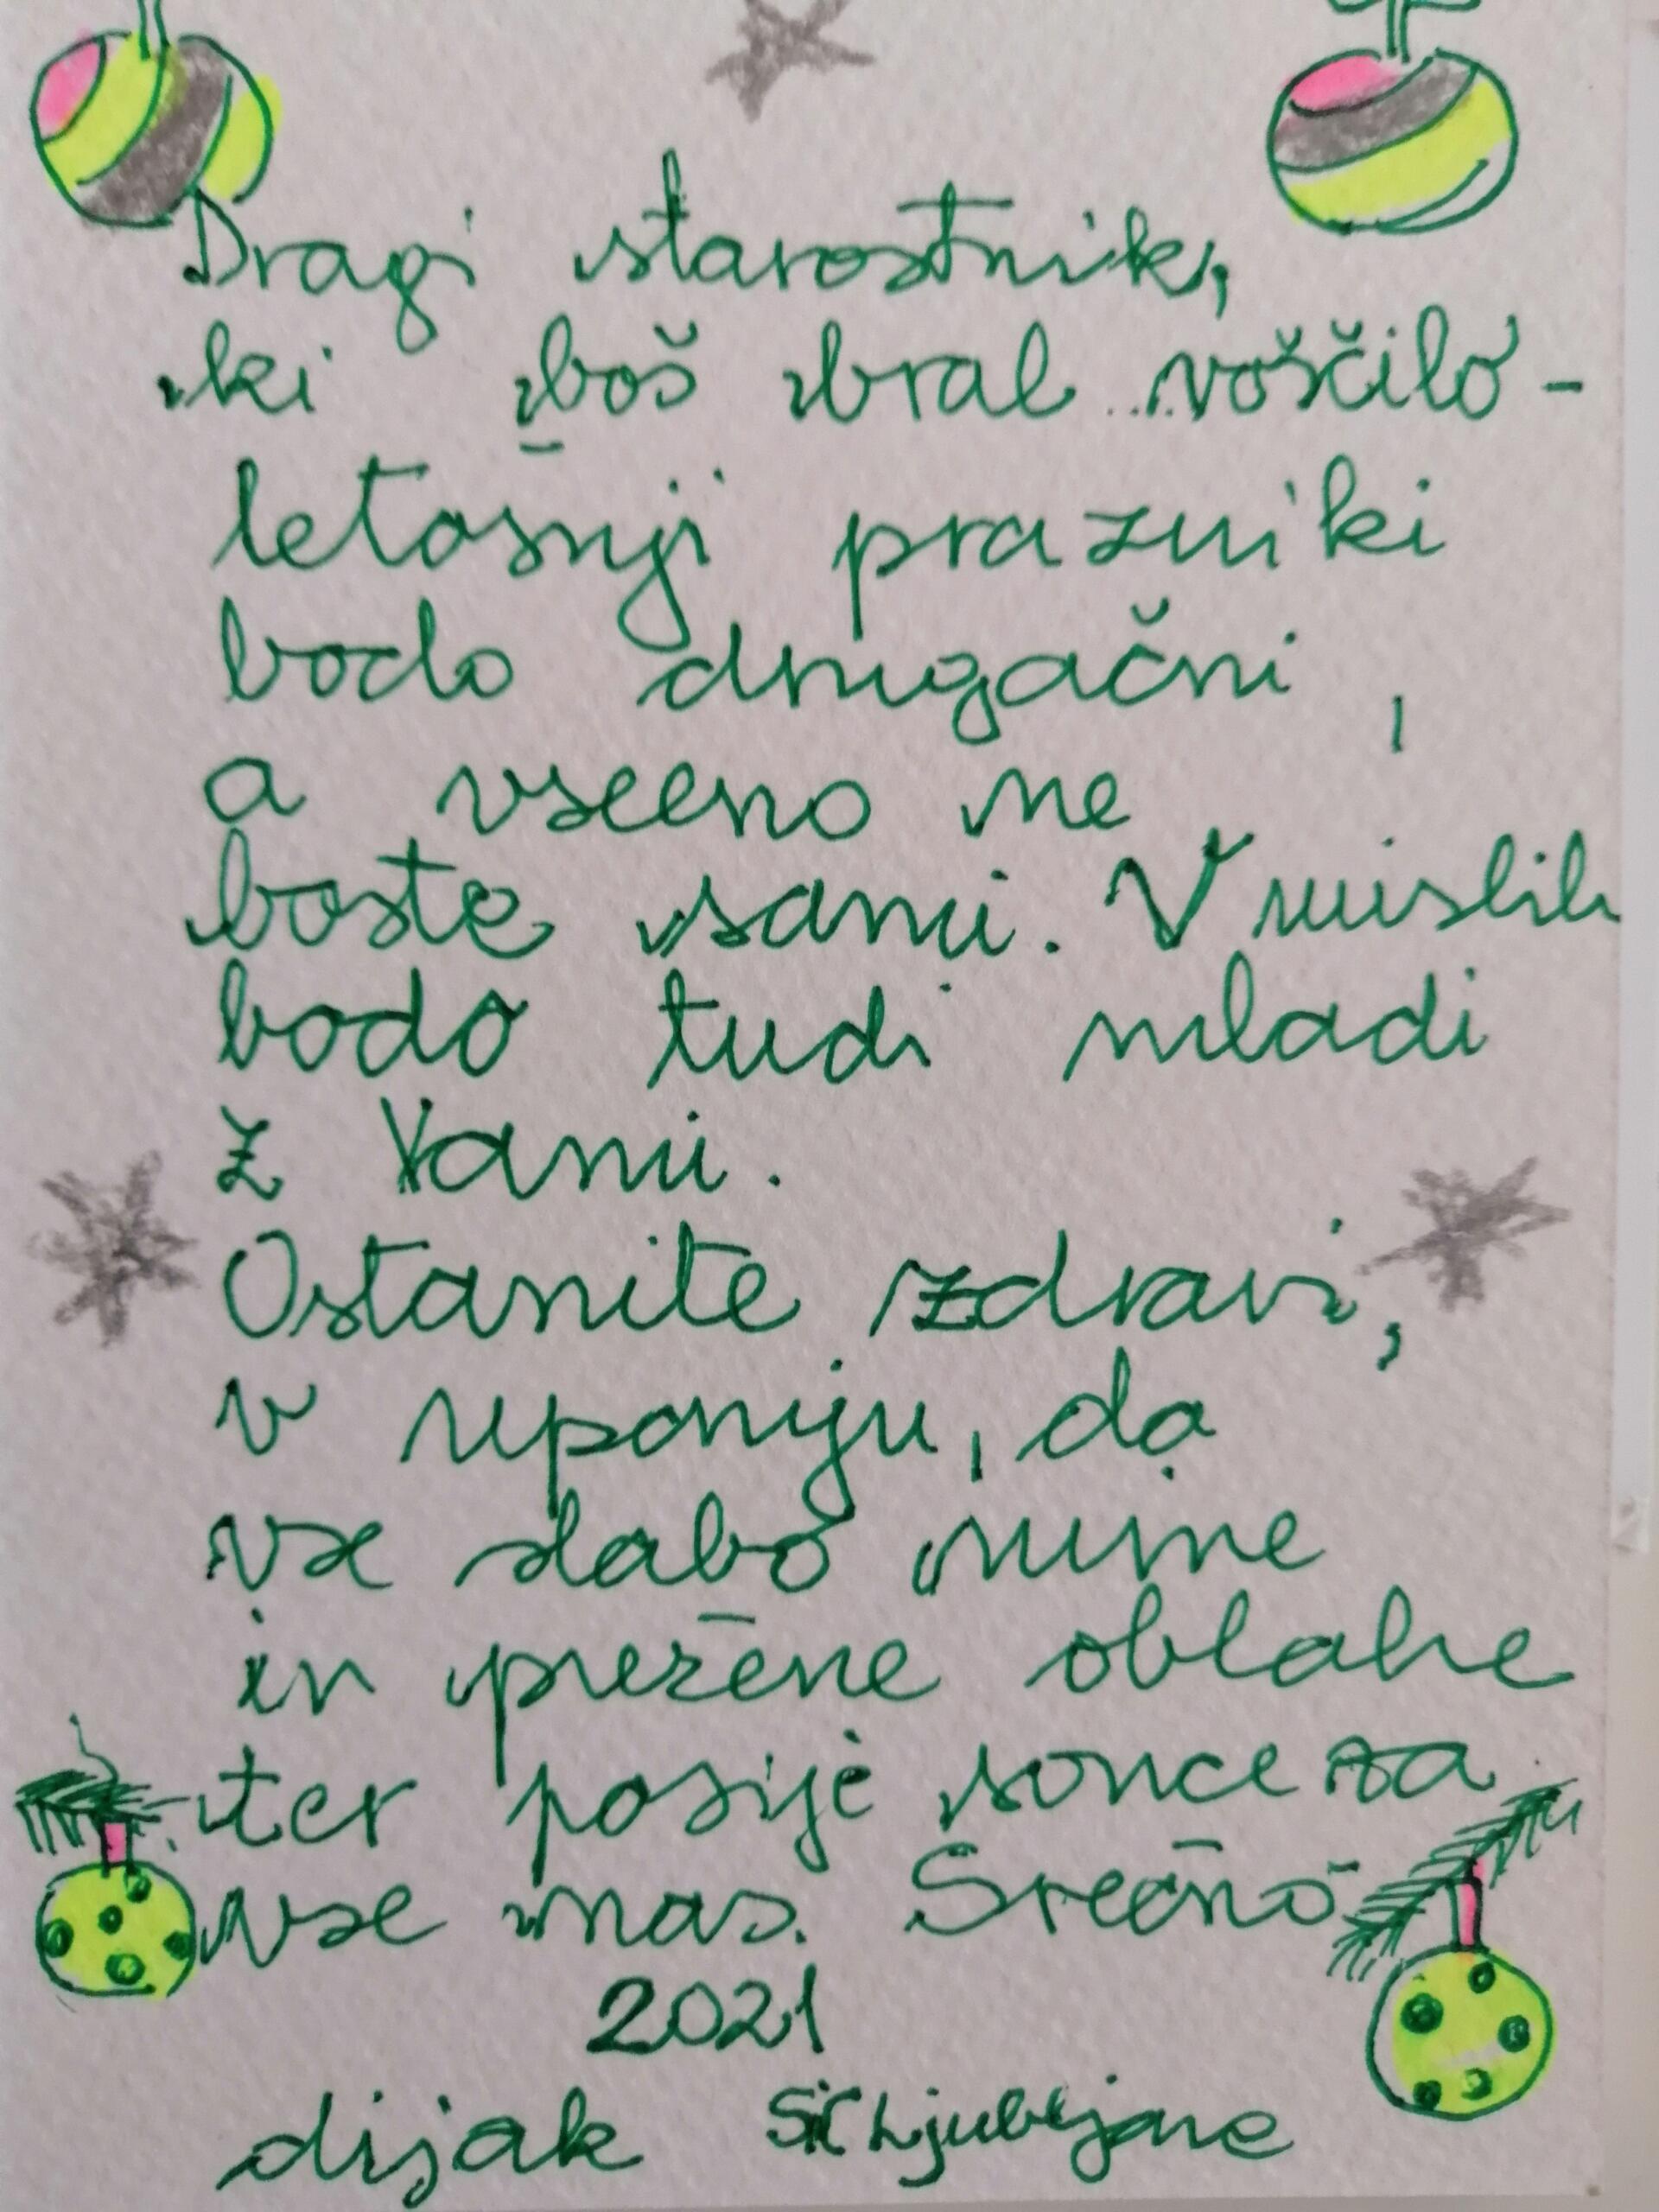 Dragi starostnik,
ki boš bral voščilo -
letošnji prazniki
bodo drugačni,
a vseeno ne
boste sami. V mislih
bodo tudi mladi
z Vami.
Ostanite zdravi,
v upanju, da
vse slabo mine
in prežene oblake
ter posije sonce za
vse nas. Srečno
2021
dijak SIC Ljubljane